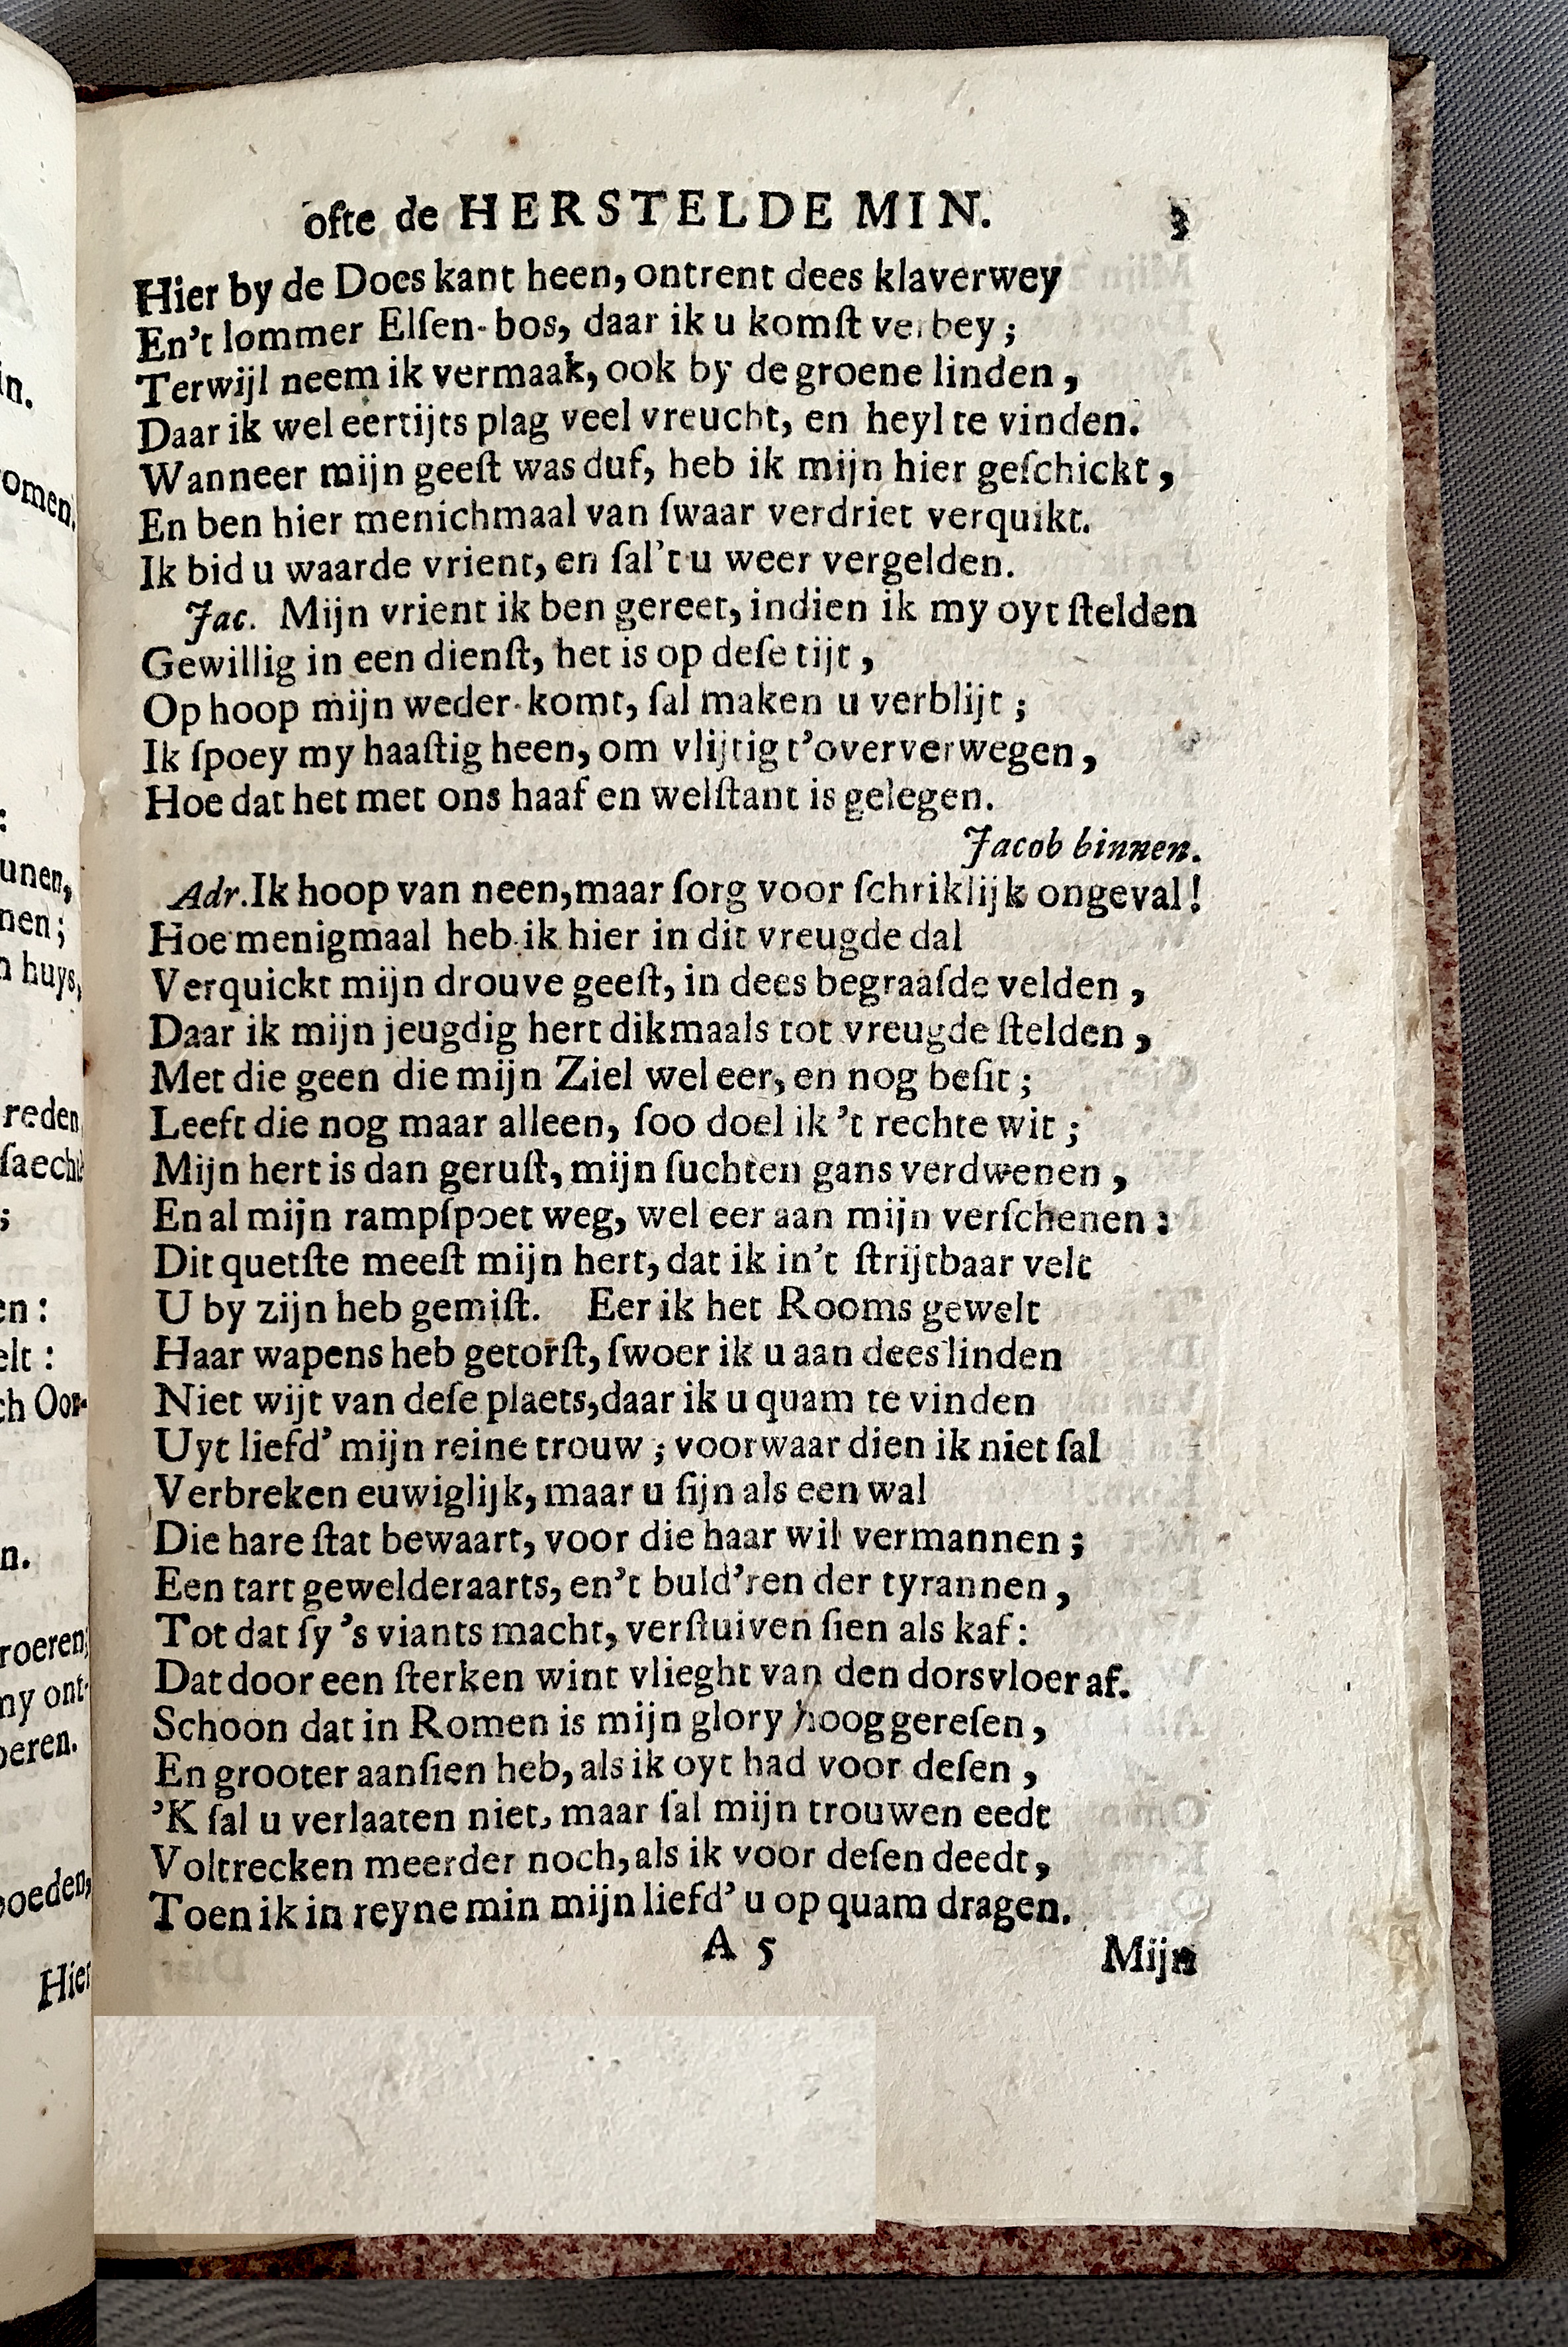 ofte de HERSTELDE MIN. 3
Hier by de Does kant heen, ontrent dees klaverwey
En't lommer Elſen-bos, daar ik u komſt verbey;
Terwijl neem ik vermaak, ook by de groene linden,
Daar ik wel eertijts plag veel vreucht, en heyl te vinden.
Wanneer mijn geeſt was duf, heb ik mijn hier geſchickt,
En ben hier menichmaal van ſwaar verdriet verquikt.
Ik bid u waarde vrient, en ſal't u weer vergelden.
Jac. Mijn vrient ik ben gereet, indien ik my oyt ſtelden
Gewillig in een dienſt, het is op deſe tijt,
Op hoop mijn weder-komt, ſal maken u verblijt;
Ik ſpoey my haaſtig heen, om vlijtig t'oververwegen,
Hoe dat het met ons haaf en welſtant is gelegen.
Jacob binnen.
Adr. Ik hoop van neen, maar ſorg voor ſchriklijk ongeval!
Hoe menigmaal heb ik hier in dit vreugde dal
Verquickt mijn drouve geeſt, in dees begraaſde velden,
Daar ik mijn jeugdig hert dikmaals tot vreugde ſtelden,
Met die geen die mijn Ziel wel eer, en nog beſit;
Leeft die nog maar alleen, ſoo doel ik 't rechte wit;
Mijn hert is dan geruſt, mijn ſuchten gans verdwenen,
En al mijn rampſpoet weg, wel eer aan mijn verſchenen:
Dit quetſte meeſt mijn hert, dat ik in't ſtrijtbaar velt
U by zijn heb gemiſt. Eer ik het Rooms gewelt
Haar wapens heb getorſt, ſwoer ik u aan dees linden
Niet wijt van deſe plaets, daar ik u quam te vinden
Uyt liefd' mijn reine trouw; voorwaar dien ik niet ſal
Verbreken euwiglijk, maar u ſijn als een wal
Die hare ſtat bewaart, voor die haar wil vermannen;
Een tart gewelderaarts, en't buld'ren der tyrannen,
Tot dat ſy 's viants macht, verſtuiven ſien als kaf:
Dat door een ſterken wint vlieght van den dorsvloer af.
Schoon dat in Romen is mijn glory hoog gereſen,
En grooter aanſien heb, als ik oyt had voor deſen,
'K ſal u verlaaten niet, maar ſal mijn trouwen eedt
Voltrecken meerder noch, als ik voor deſen deedt,
Toen ik in reyne min mijn liefd' u op quam dragen.
A 5 Mijn